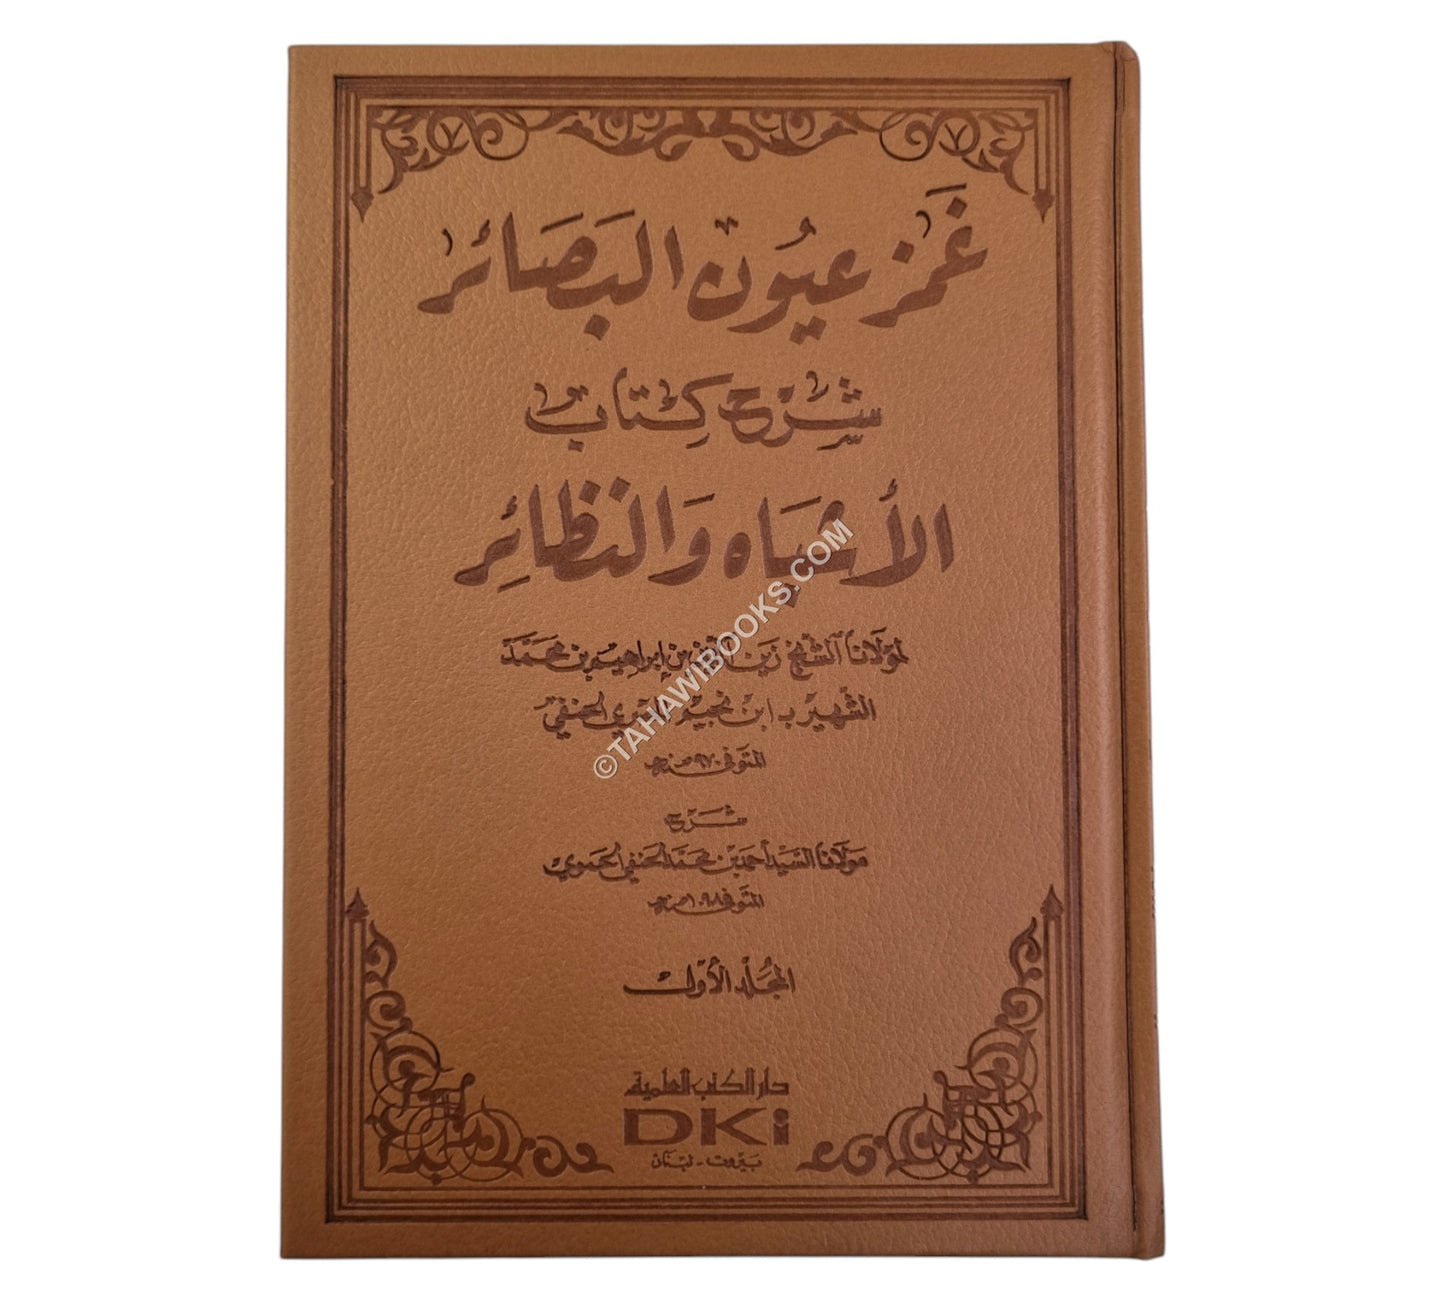 غَمَز عيُون البَصَائر
شَرْح كِتَاب
الأشبَاه وَالنظائِر
لمَولَانا الشيخ زين الدين بن إبراهيم بن محَمَّد
الشهير بـ ابن نجيم المصري الحنفي
المتوفى ٩٧٠ هـ
شَرْح
مَولَانا السَّيد أحمد بن محمَّد الحنفي الحموي
المتوفى ١٠٩٨ هـ
المُجَلد الأوّل
دار الكتب العلمية
DKi
بَيْروت - لبْنان
©TAHAWIBOOKS.COM